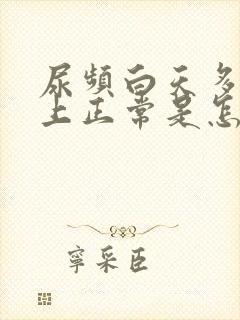 尿頻白天多
上正常是怎
寧采臣